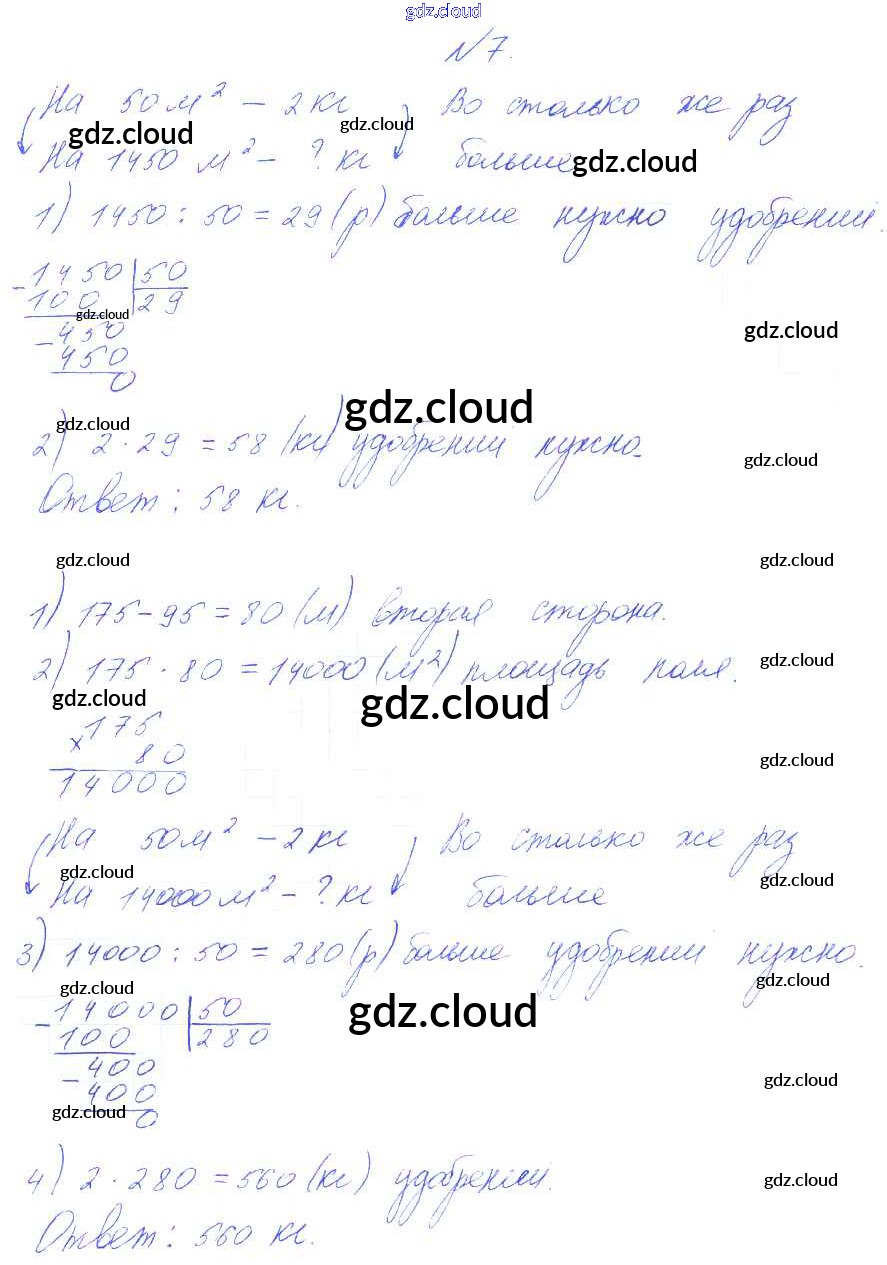 gdz.cloud
№7.
На 50 м² – 2 кг Во столько же раз
gdz.cloud gdz.cloud
На 1450 м² – ? кг больше gdz.cloud
1) 1450 : 50 = 29 (р) больше нужно удобрений.
- 1450 | 50
100 | 29
gdz.cloud
- 450
gdz.cloud
450
0
gdz.cloud
gdz.cloud
2) 2 · 29 = 58 (кг) удобрений нужно.
gdz.cloud
Ответ: 58 кг.
gdz.cloud gdz.cloud
1) 175 – 95 = 80 (м) вторая сторона.
2) 175 · 80 = 14000 (м²) площадь поля.
gdz.cloud
gdz.cloud gdz.cloud
× 175
80
gdz.cloud
14000
На 50 м² – 2 кг Во столько же раз
gdz.cloud gdz.cloud
На 14000 м² – ? кг больше
3) 14000 : 50 = 280 (р) больше удобрений нужно.
gdz.cloud gdz.cloud
- 14000 | 50
gdz.cloud
100 | 280
- 400
gdz.cloud
400
gdz.cloud
0
4) 2 · 280 = 560 (кг) удобрений.
gdz.cloud
Ответ: 560 кг.